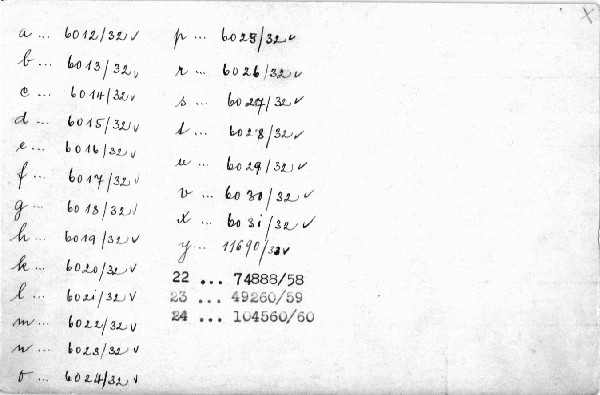 a ... 6012/32 ✓
b ... 6013/32 ✓
c ... 6014/32 ✓
d ... 6015/32 ✓
e ... 6016/32 ✓
f ... 6017/32 ✓
g ... 6018/32 ✓
h ... 6019/32 ✓
k ... 6020/32 ✓
l ... 6021/32 ✓
m ... 6022/32 ✓
n ... 6023/32 ✓
o ... 6024/32 ✓
p ... 6025/32 ✓
r ... 6026/32 ✓
s ... 6027/32 ✓
t ... 6028/32 ✓
u ... 6029/32 ✓
v ... 6030/32 ✓
x ... 6031/32 ✓
y ... 11690/33 ✓
22 ... 74888/58
23 ... 49260/59
24 ... 104560/60
X